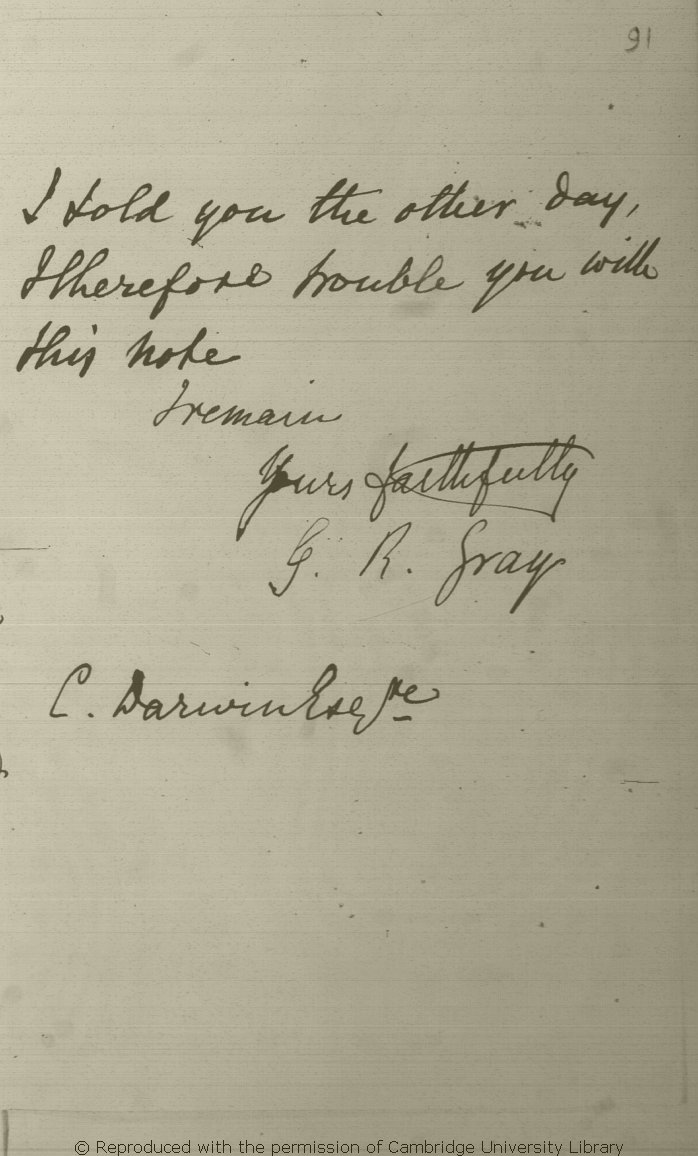 91
I told you the other day,
I therefore trouble you with
this note
I remain
Yours faithfully
G. R. Gray
C. Darwin Esqre
© Reproduced with the permission of Cambridge University Library